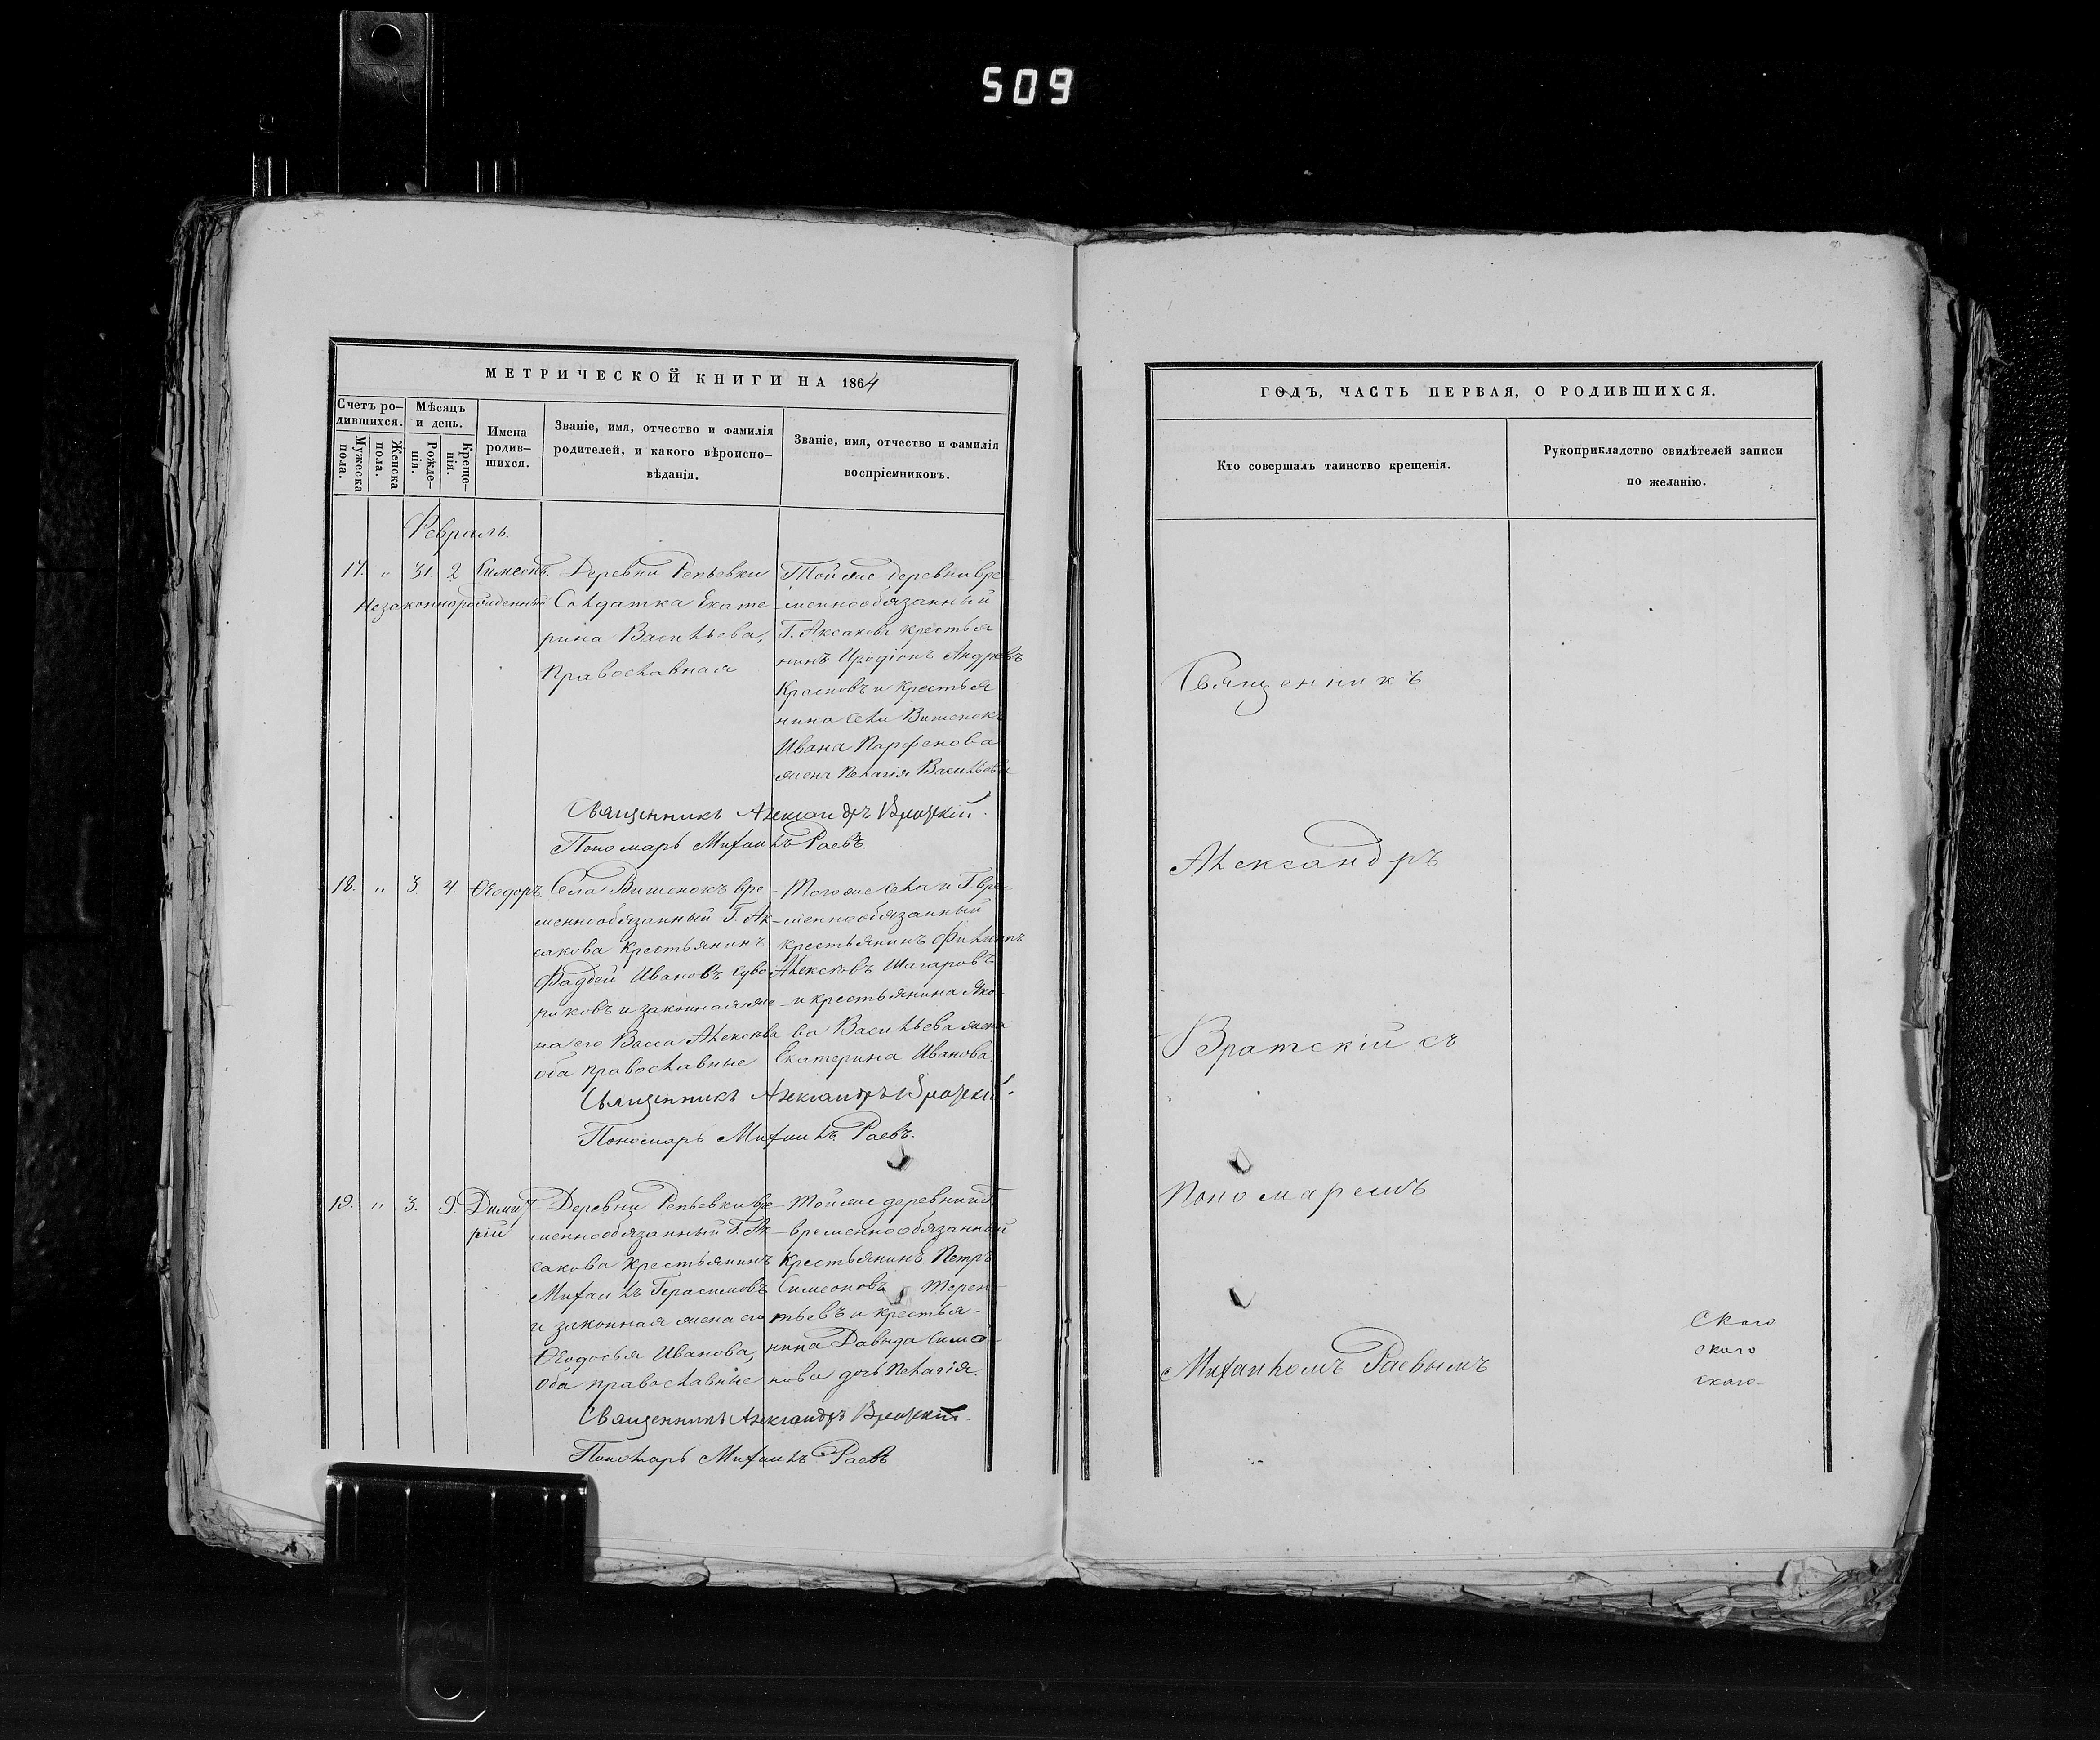 509
МЕТРИЧЕСКОЙ КНИГИ НА 1864
Счетъ ро-
дившихся.
Мѣсяцъ
и день.
Мужеска
пола.
Женска
пола.
Рожде-
нія.
Креще-
нія.
Имена
родив-
шихся.
Званіе, имя, отчество и фамилія
родителей, и какого вѣроиспо-
вѣданія.
Званіе, имя, отчество и фамилія
воспріемниковъ.
Февраль.
17. " 31. 2 Симеонъ.
Незаконнорожденный
Деревни Репьевки
Солдатка Екате-
рина Васильева,
православная
Той же деревни вре-
меннообязанный
Г. Аксакова крестья
нинъ Иродіонъ Андреевъ
Красновъ и крестья
нина села Вишенокъ
Ивана Парфенова
жена Пелагія Васильева.
Священникъ Александръ Братскій.
Пономарь Михаилъ Раевъ.
18. " 3. 4. Ѳеодоръ.
Села Вишенокъ вре-
меннообязанный Г. Ак-
сакова крестьянинъ
Фаддей Ивановъ Суво
риковъ и законная же-
на его Васса Алексѣева
оба православные
Того же села и Г. вре-
меннообязанный
крестьянинъ Филиппъ
Алексѣевъ Шагаровъ
и крестьянина Яко-
ва Васильева жена
Екатерина Иванова.
Священникъ Александръ Братскій.
Пономарь Михаилъ Раевъ.
19. " 3. 9 Димит
рій
Деревни Репьевки вре-
меннообязанный Г. Ак-
сакова крестьянинъ
Михаилъ Герасимовъ
и законная жена его
Ѳеодосья Иванова,
оба православные
Той же деревни и Г.
временнообязанный
крестьянинъ Петръ
Симеоновъ Терен-
тьевъ и крестья-
нина Давыда Симо-
нова дочь Пелагія.
Священникъ Александръ Братскій.
Пономарь Михаилъ Раевъ
ГОДЪ, ЧАСТЬ ПЕРВАЯ, О РОДИВШИХСЯ.
Кто совершалъ таинство крещенія.
Рукоприкладство свидѣтелей записи
по желанію.
Священникъ
Александръ
Братскій съ
Пономаремъ
Михаиломъ Раевымъ
Ского
ского
ского-